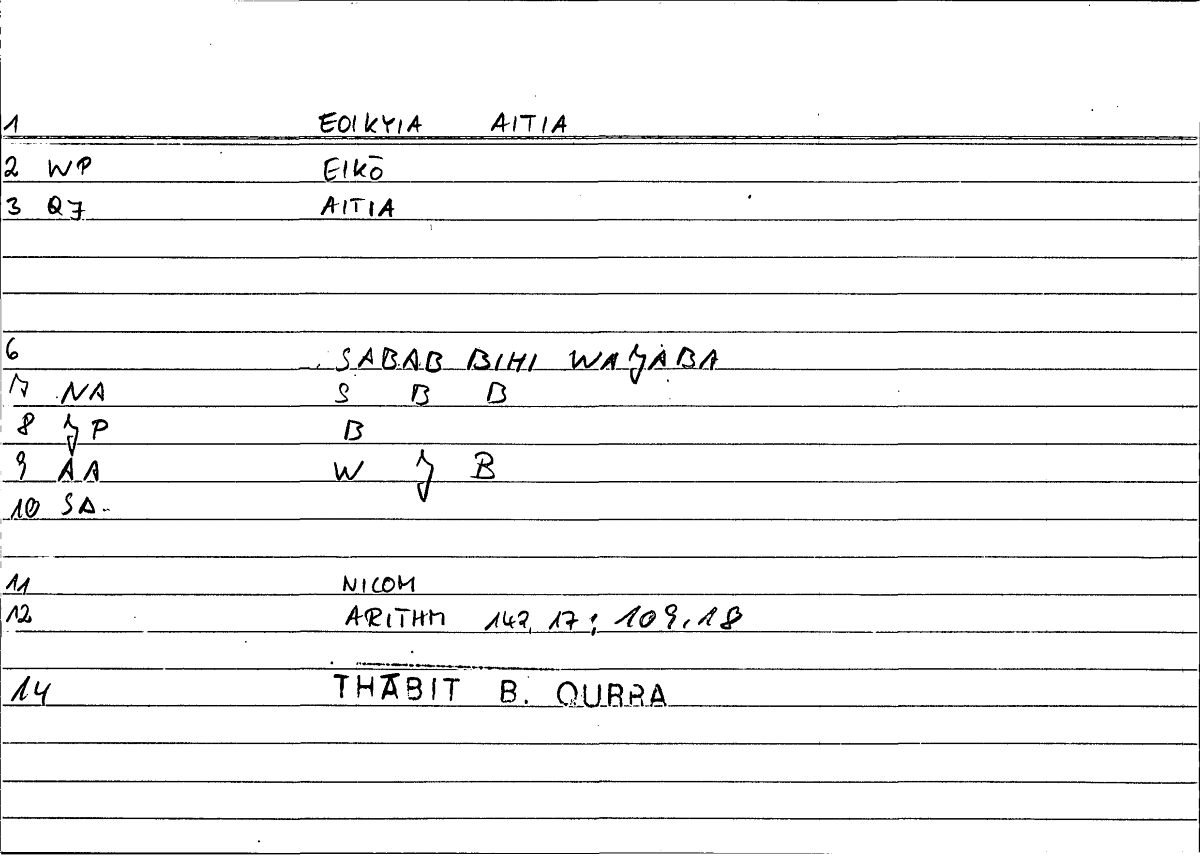 1 EOIKYIA AITIA
2 WP EIKŌ
3 QJ AITIA
6 SABAB BIHI WAJABA
7 NA S B B
8 JP B
9 AA W J B
10 SA.
11 NICOM
12 ARITHM 142, 17; 109,18
14 THĀBIT B. QURRA